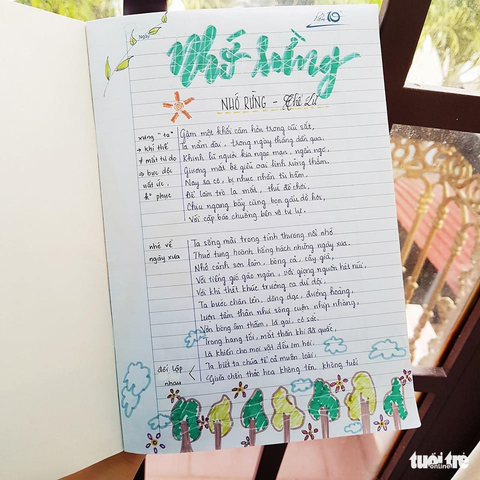 Ngày
Nhớ rừng
NHỚ RỪNG - Thế Lữ
xưng "ta"
→ khí thế
≠ mất tự do
→ bực dọc
uất ức,
k° phục
Gậm một khối căm hờn trong cũi sắt,
Ta nằm dài, trông ngày tháng dần qua.
Khinh lũ người kia ngạo mạn, ngẩn ngơ,
Giương mắt bé giễu oai linh rừng thẳm.
Nay sa cơ, bị nhục nhằn tù hãm,
Để làm trò lạ mắt, thứ đồ chơi,
Chịu ngang bầy cùng bọn gấu dở hơi,
Với cặp báo chuồng bên vô tư lự.
nhớ về
ngày xưa
Ta sống mãi trong tình thương nỗi nhớ
Thuở tung hoành hống hách những ngày xưa.
Nhớ cảnh sơn lâm, bóng cả, cây già,
Với tiếng gió gào ngàn, với giọng nguồn hét núi,
Với khi thét khúc trường ca dữ dội,
Ta bước chân lên, dõng dạc, đường hoàng,
Lượn tấm thân như sóng cuộn nhịp nhàng,
Vờn bóng âm thầm, lá gai, cỏ sắc.
Trong hang tối, mắt thần khi đã quắc,
Là khiến cho mọi vật đều im hơi.
Ta biết ta chúa tể cả muôn loài,
Giữa chốn thảo hoa không tên, không tuổi
đối lập
nhau
tuổi trẻ
online